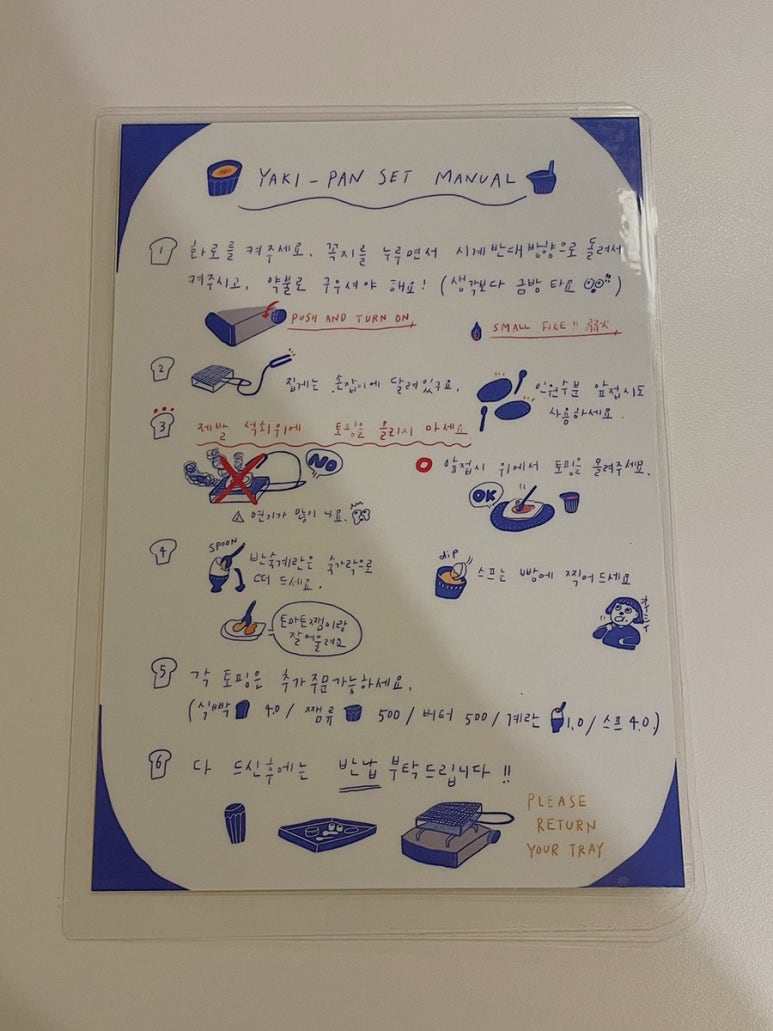 YAKI-PAN SET MANUAL
1 화로를 켜주세요. 꼭지를 누루면서 시계반대방향으로 돌려서
켜주시고, 약불로 구우셔야 해요! (생각보다 금방 타요)
PUSH AND TURN ON,
SMALL FIRE!! 弱火
2 집게는 손잡이에 달려있구요,
인원수분 앞접시도
사용하세요.
3 제발 석쇠위에 토핑을 올리시 마세요
NO
앞접시 위에서 토핑을 올려주세요.
OK
연기가 많이 나요.
4 SPOON
반숙계란은 숟가락으로
떠 드세요.
dip
스프는 빵에 찍어드세요
토마토쨈이랑
잘어울려요
オイシイ
5 각 토핑은 추가주문가능하세요.
(식빵 4.0 / 쨈류 500 / 버터 500 / 계란 1.0 / 스프 4.0.)
6 다 드신후에는 반납 부탁드립니다!!
PLEASE
RETURN
YOUR TRAY.